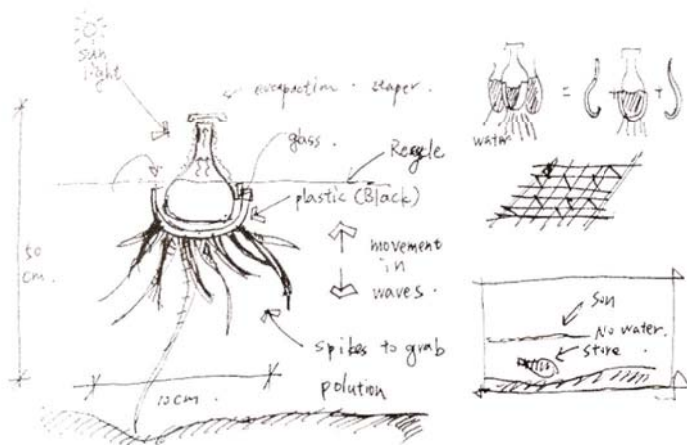 sun
light
evapaction · staper.
glass.
Recycle
plastic (Black)
movement
in
waves.
50
cm.
spikes to grab
polution
10cm.
water
=
+
Sun
No water.
store